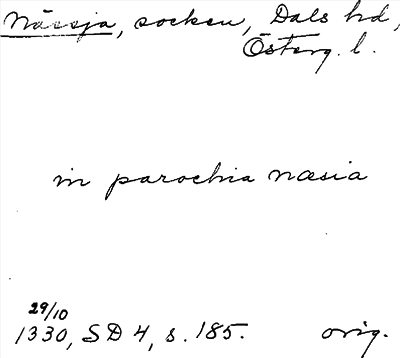 Nässja, socken, Dals hd,
Österg. l.
in parochia næsia
29/10
1330, SD 4, s. 185. orig.